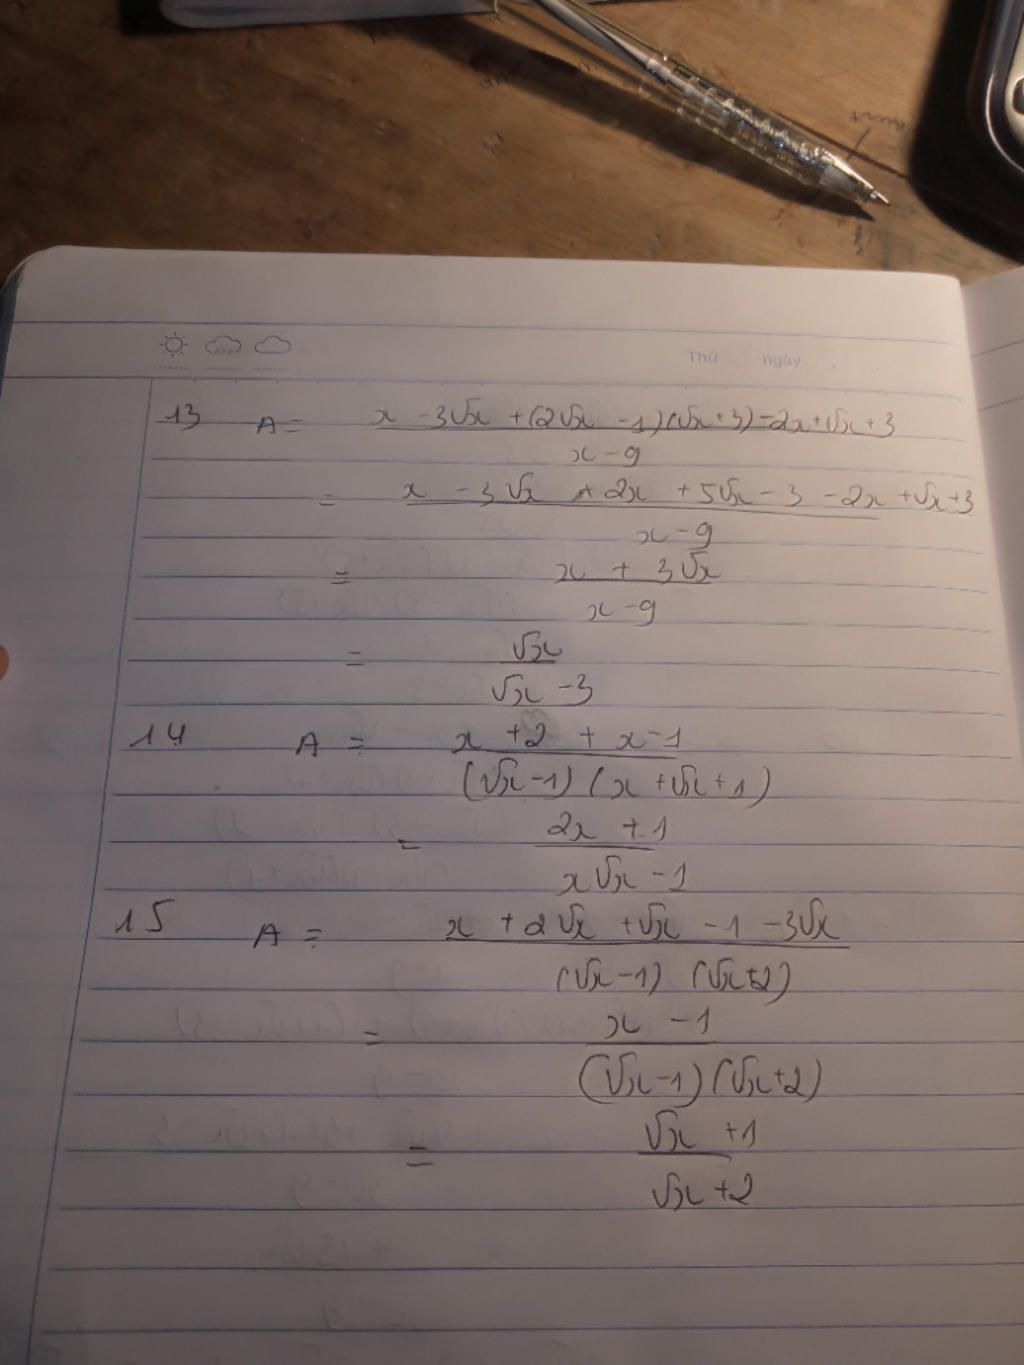 Thứ ngày
13 A = x - 3√x + (2√x - 1)(√x + 3) - 2x + √x + 3
x - 9
= x - 3√x + 2x + 5√x - 3 - 2x + √x + 3
x - 9
= x + 3√x
x - 9
= √x
√x - 3
14 A = x + 2 + x - 1
(√x - 1) (x + √x + 1)
= 2x + 1
x√x - 1
15 A = x + 2√x + √x - 1 - 3√x
(√x - 1) (√x + 2)
= x - 1
(√x - 1) (√x + 2)
= √x + 1
√x + 2